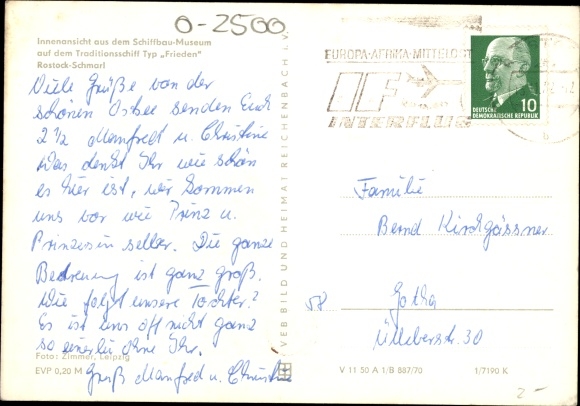 0-2500
Innenansicht aus dem Schiffbau-Museum
auf dem Traditionsschiff Typ „Frieden"
Rostock-Schmarl
Viele Grüße von der
schönen Ostsee senden Euch
2 1/2 Manfred u. Christine
Was denkt Ihr wie schön
es hier ist, wir kommen
uns vor wie Prinz u.
Prinzessin selber. Die ganze
Bedienung ist ganz groß.
Wie folgt unsere Tochter?
Es ist uns oft nicht ganz
so einerlei ohne Ihr.
Gruß Manfred u. Christine
Foto: Zimmer, Leipzig
EVP 0,20 M
VEB BILD UND HEIMAT REICHENBACH i. V.
EUROPA·AFRIKA·MITTELOST
IF
INTERFLUG
10
DEUTSCHE
DEMOKRATISCHE REPUBLIK
Familie
Bernd Kirchgässner
58 Gotha
Ülleberstr. 30
V 11 50 A 1/B 887/70 1/7190 K
2-